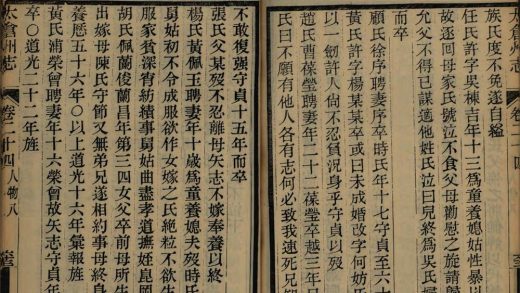 族氏度不免遂自縊
任氏許字吳棟吉年十三爲童養媳姑性暴以
故逐回母家氏號泣不食父母勸慰之旋請歸
允父不得已謀適他姓女泣曰兒終爲吳氏婦
而卒
顧氏徐序聘妻序卒時氏年十七守貞至六十
黃氏許字楊某某卒或曰未成婚改字何妨氏
以一劒許人尚不忍負況身乎守貞以歿
趙氏曹葆瑩聘妻年二十二葆瑩卒越三年
氏曰不願有他人各有志何必致我速死兄
不敢復強守貞十五年而卒
張氏父某歿不忍離母矢志不嫁奉養以終
楊氏黃佩玉聘妻年十歲爲童養媳夫歿時氏
舅姑初不令成服欲作女嫁之氏絕粒不欲生
服家貧深宵紡績事舅姑曲盡孝道撫姪昆
胡氏佩蘭俊蘭昌年第三四女父卒前母所生
出嫁母陳氏守節又無弟兄遂相約事母終身
養歷五十六年○以上道光十六年彙報旌
黃氏浦榮曾聘妻年十六榮曾故矢志守貞
卒○道光二十二年旌
太倉州志 卷二十四 人物八